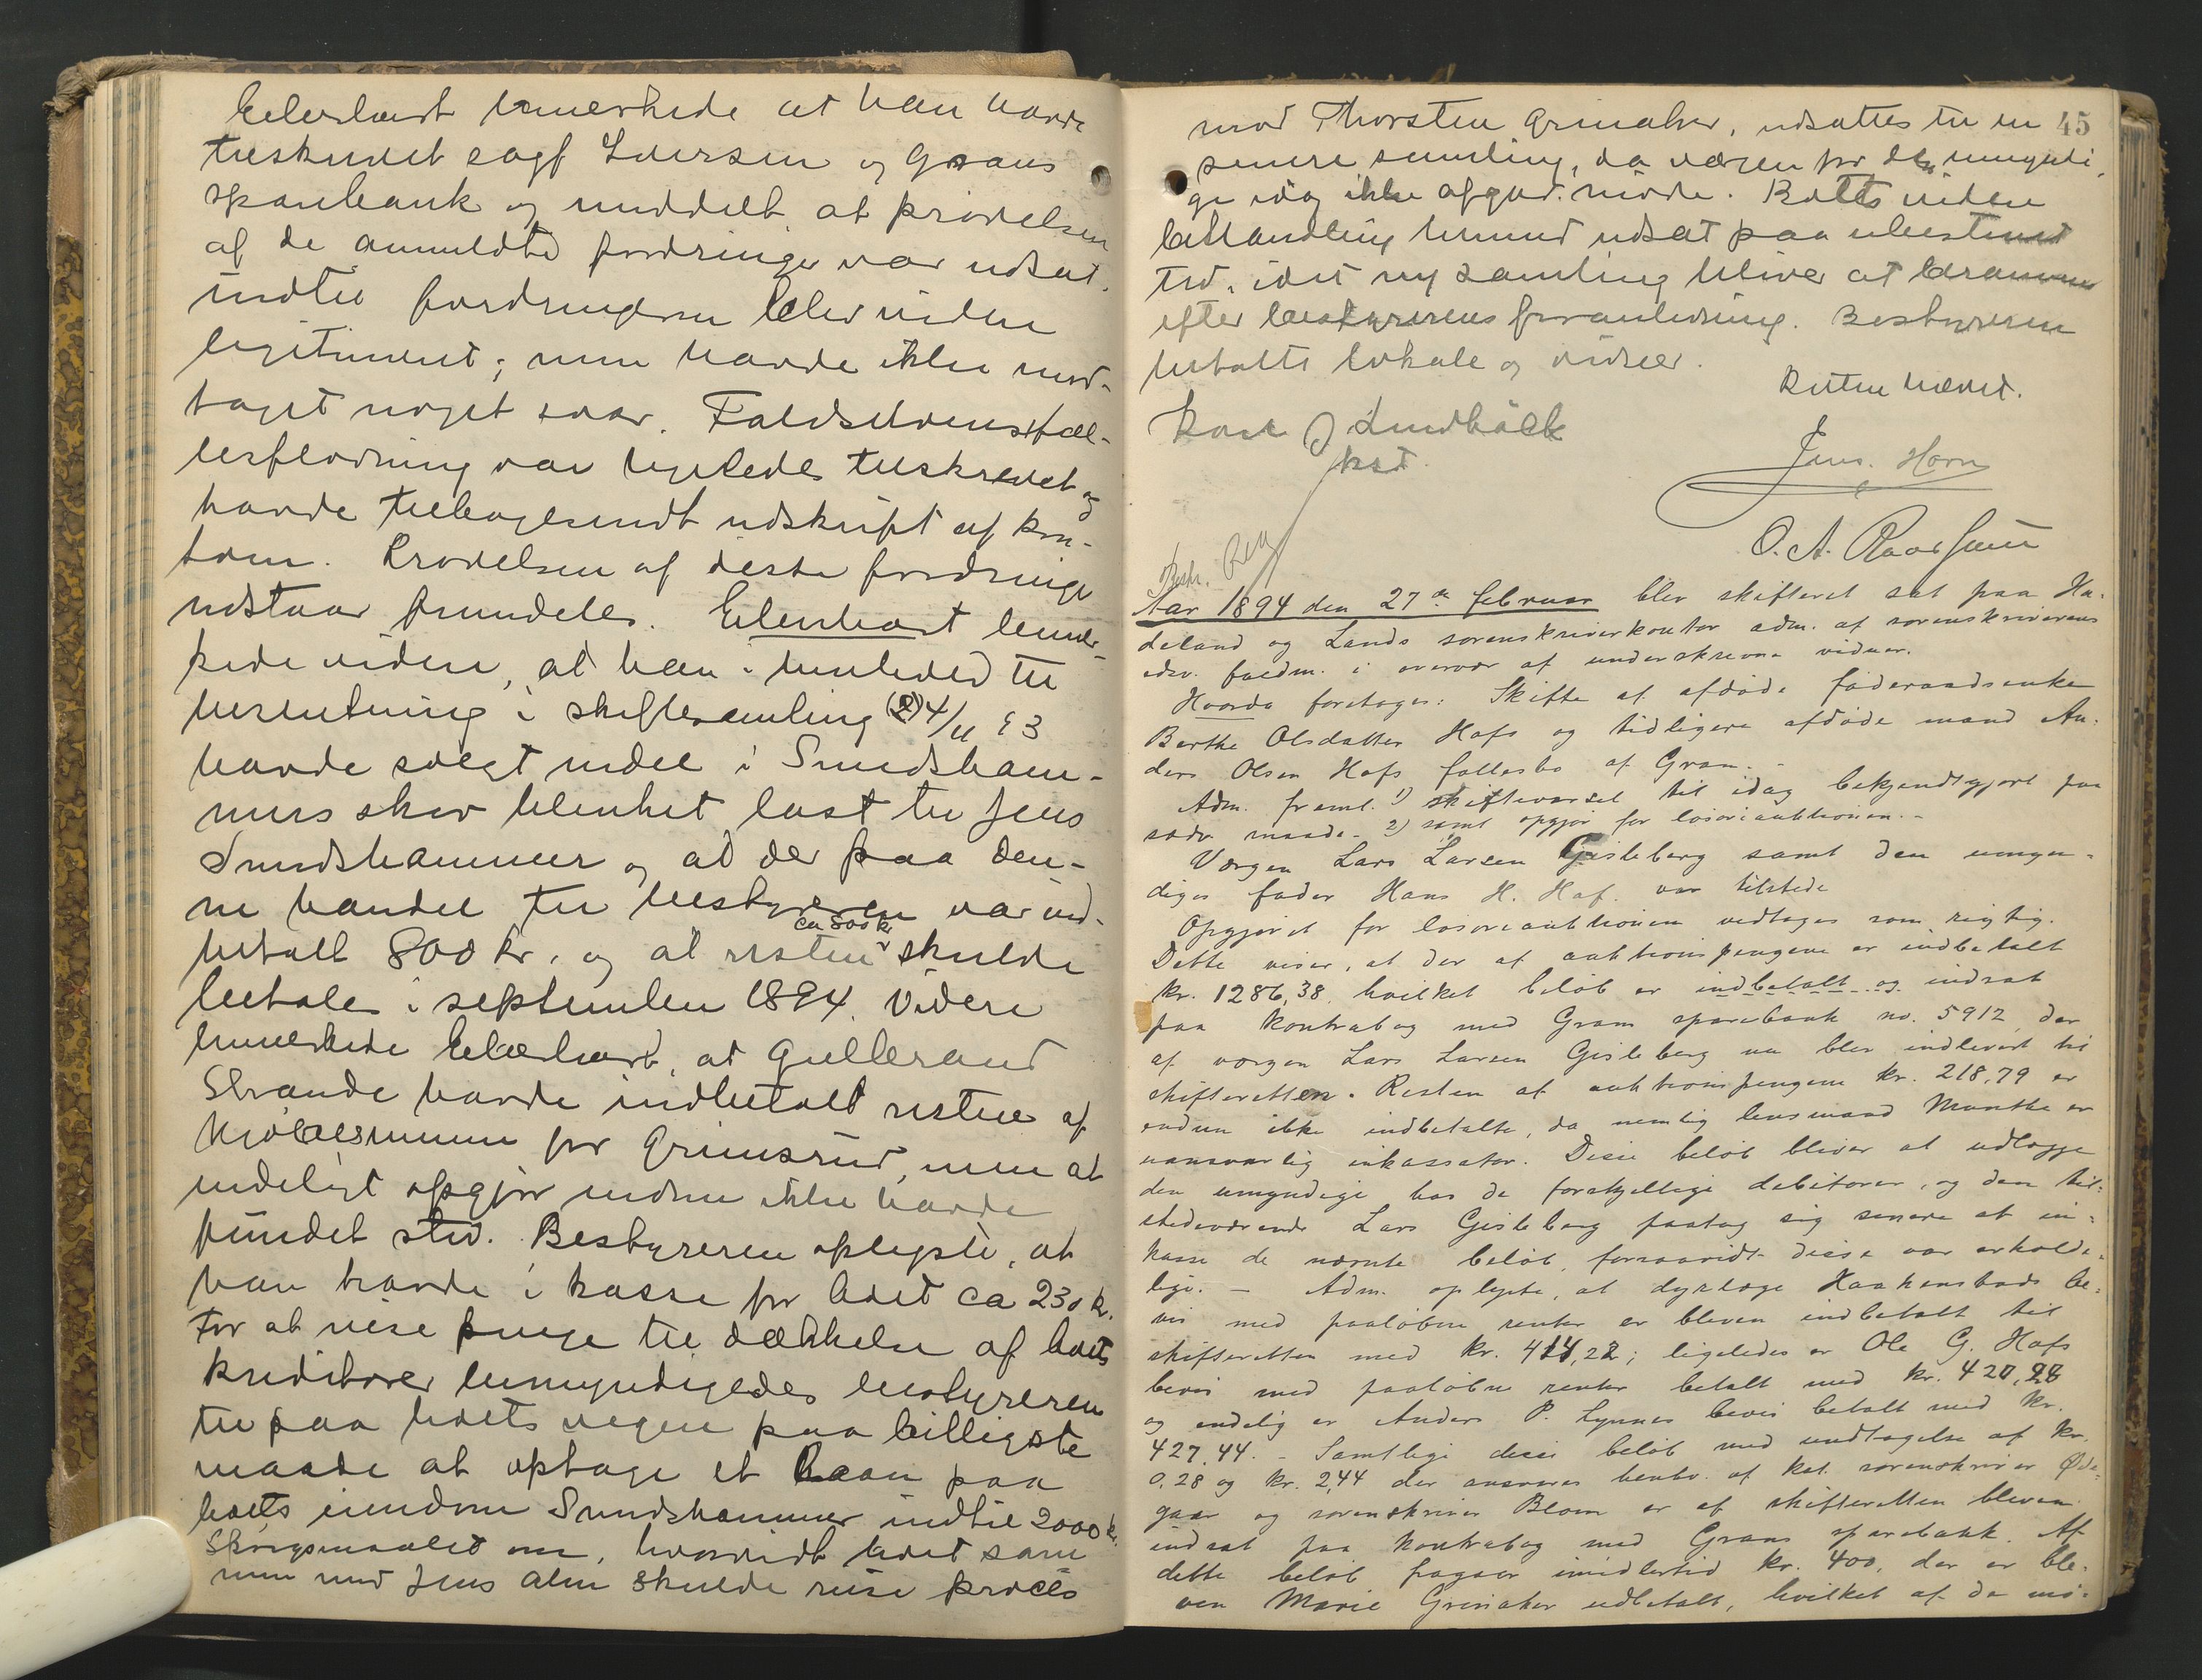 bemerkede at han havde
tilskrevet sagf Iversen og Grans
sparebank og meddelt at prøvelsen
af de anmeldte fordringer var udsat,
indtil fordringerne blev videre
legitimeret; men havde ikke mod-
taget noget svar. Faldselvens fæl-
lesflødning var ligeledes tilskrevet og
havde tilbagesendt udskrift af kon-
toen. Prøvelsen af disse fordringer
udstaar fremdeles. bemær-
kede videre, at han i henhold til
beretning i skiftesamling (2) 4/11 93
havde solgt endel i Smedsham-
mers skov blinket last til Jens
Smedshammer og at der paa den-
ne handel til bestyreren var ind-
ca 800 kr
betalt 800 kr. og at resten skulde
betales i september 1894. Videre
bemerkede at Gulbrand
Strande havde indbetalt resten af
kjøbesummen for Grimsrud, men at
endeligt opgjør endnu ikke havde
fundet sted. Bestyreren oplyste, at
han havde i kasse for boet ca 230 kr.
For at reise penge til dækkelse af boets
kreditorer bemyndigedes bestyreren
til paa boets vegne paa billigste
maade at optage et laan paa
boets eiendom Smedshammer indtil 2000 kr.
Spørgsmaalet om, hvorvidt boet sam-
men med Jens Alm skulde reise proces
45
mod Thorsten Grinaker, udsattes til en
senere samling, da værgen for de umyndi-
ge idag ikke afgav møde. Boets videre
behandling herved udsat paa ubestemt
tid, idet ny samling bliver at beramme
efter bestyrerens foranledning. Bestyreren
betalte lokale og vidner.
Retten hævet.
Lundbäck
kst.
Jens. Horn
O. A.
Aar 1894 den 27de februar blev skifteret sat paa Ha-
deland og Lands sorenskriverkontor adm. af sorenskriverens
edsv. fuldm. i overvær af underskrevne vidner.
Hvorda foretoges: Skifte af afdøde føderaadsenke
Berthe Olsdatter Hofs og tidligere afdøde mand An-
ders Olsen Hofs fællesbo af Gran. -
Adm. freml. 1) skiftevarsel til idag bekjendtgjort paa
sædv. maade - 2) samt opgjør for løsøreauktionen. -
Værgen Lars Larsen Gisleberg samt den umyn-
diges fader Hans H. Hof. var tilstede
Opgjøret for løsøreauktionen vedtoges som rigtig.
Dette viser, at der af auktionspengene er indbetalt
kr. 1286,38, hvilket beløb er indbetalt og indsat
paa kontrabog med Grans sparebank no. 5912, der
af værgen Lars Larsen Gisleberg nu blev indleveret til
skifteretten. Resten af auktionspengene kr. 218,79 er
endnu ikke indbetalte, da nemlig lensmand Munthe er
uansvarlig inkassator. Disse beløb bliver at udlægge
den umyndige hos de forskjellige debitorer, og den til-
stedeværende Lars Gisleberg paatog sig senere at in-
kasse de nævnte beløb, forsaavidt disse var erholde-
lige. - Adm. oplyste, at dyrlæge Haakenstads be-
vis med paaløbne renter er bleven indbetalt til
skifteretten med kr. 414,22; ligeledes er Ole G. Hofs
bevis med paaløbne renter betalt med kr. 420,28
og endelig er Anders P. Lynnes bevis betalt med kr.
427,44. - Samtlige disse beløb med undtagelse af kr.
0,28 og kr. 2,44 der ansvares henhv. af kst. sorenskriver Øde-
gaar og sorenskriver Blom er af skifteretten bleven
indsat paa kontrabog med Grans sparebank. Af
dette beløb fragaar imidlertid kr. 400, der er ble-
ven Marie Grinaker udbetalt, hvilket af de mø-